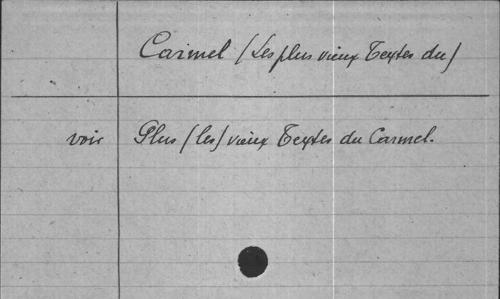 Carmel (Les plus vieux Textes du)
voir Plus (les) vieux Textes du Carmel.